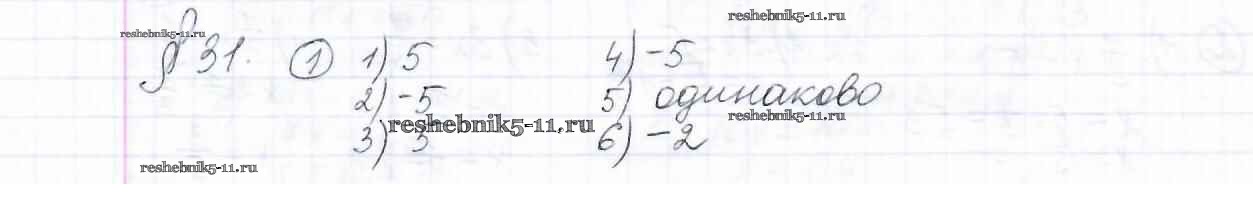 reshebnik5-11.ru
reshebnik5-11.ru
§ 31. ① 1) 5 4) -5
2) -5 5) одинаково
reshebnik5-11.ru
reshebnik5-11.ru
3) 3 6) -2
reshebnik5-11.ru